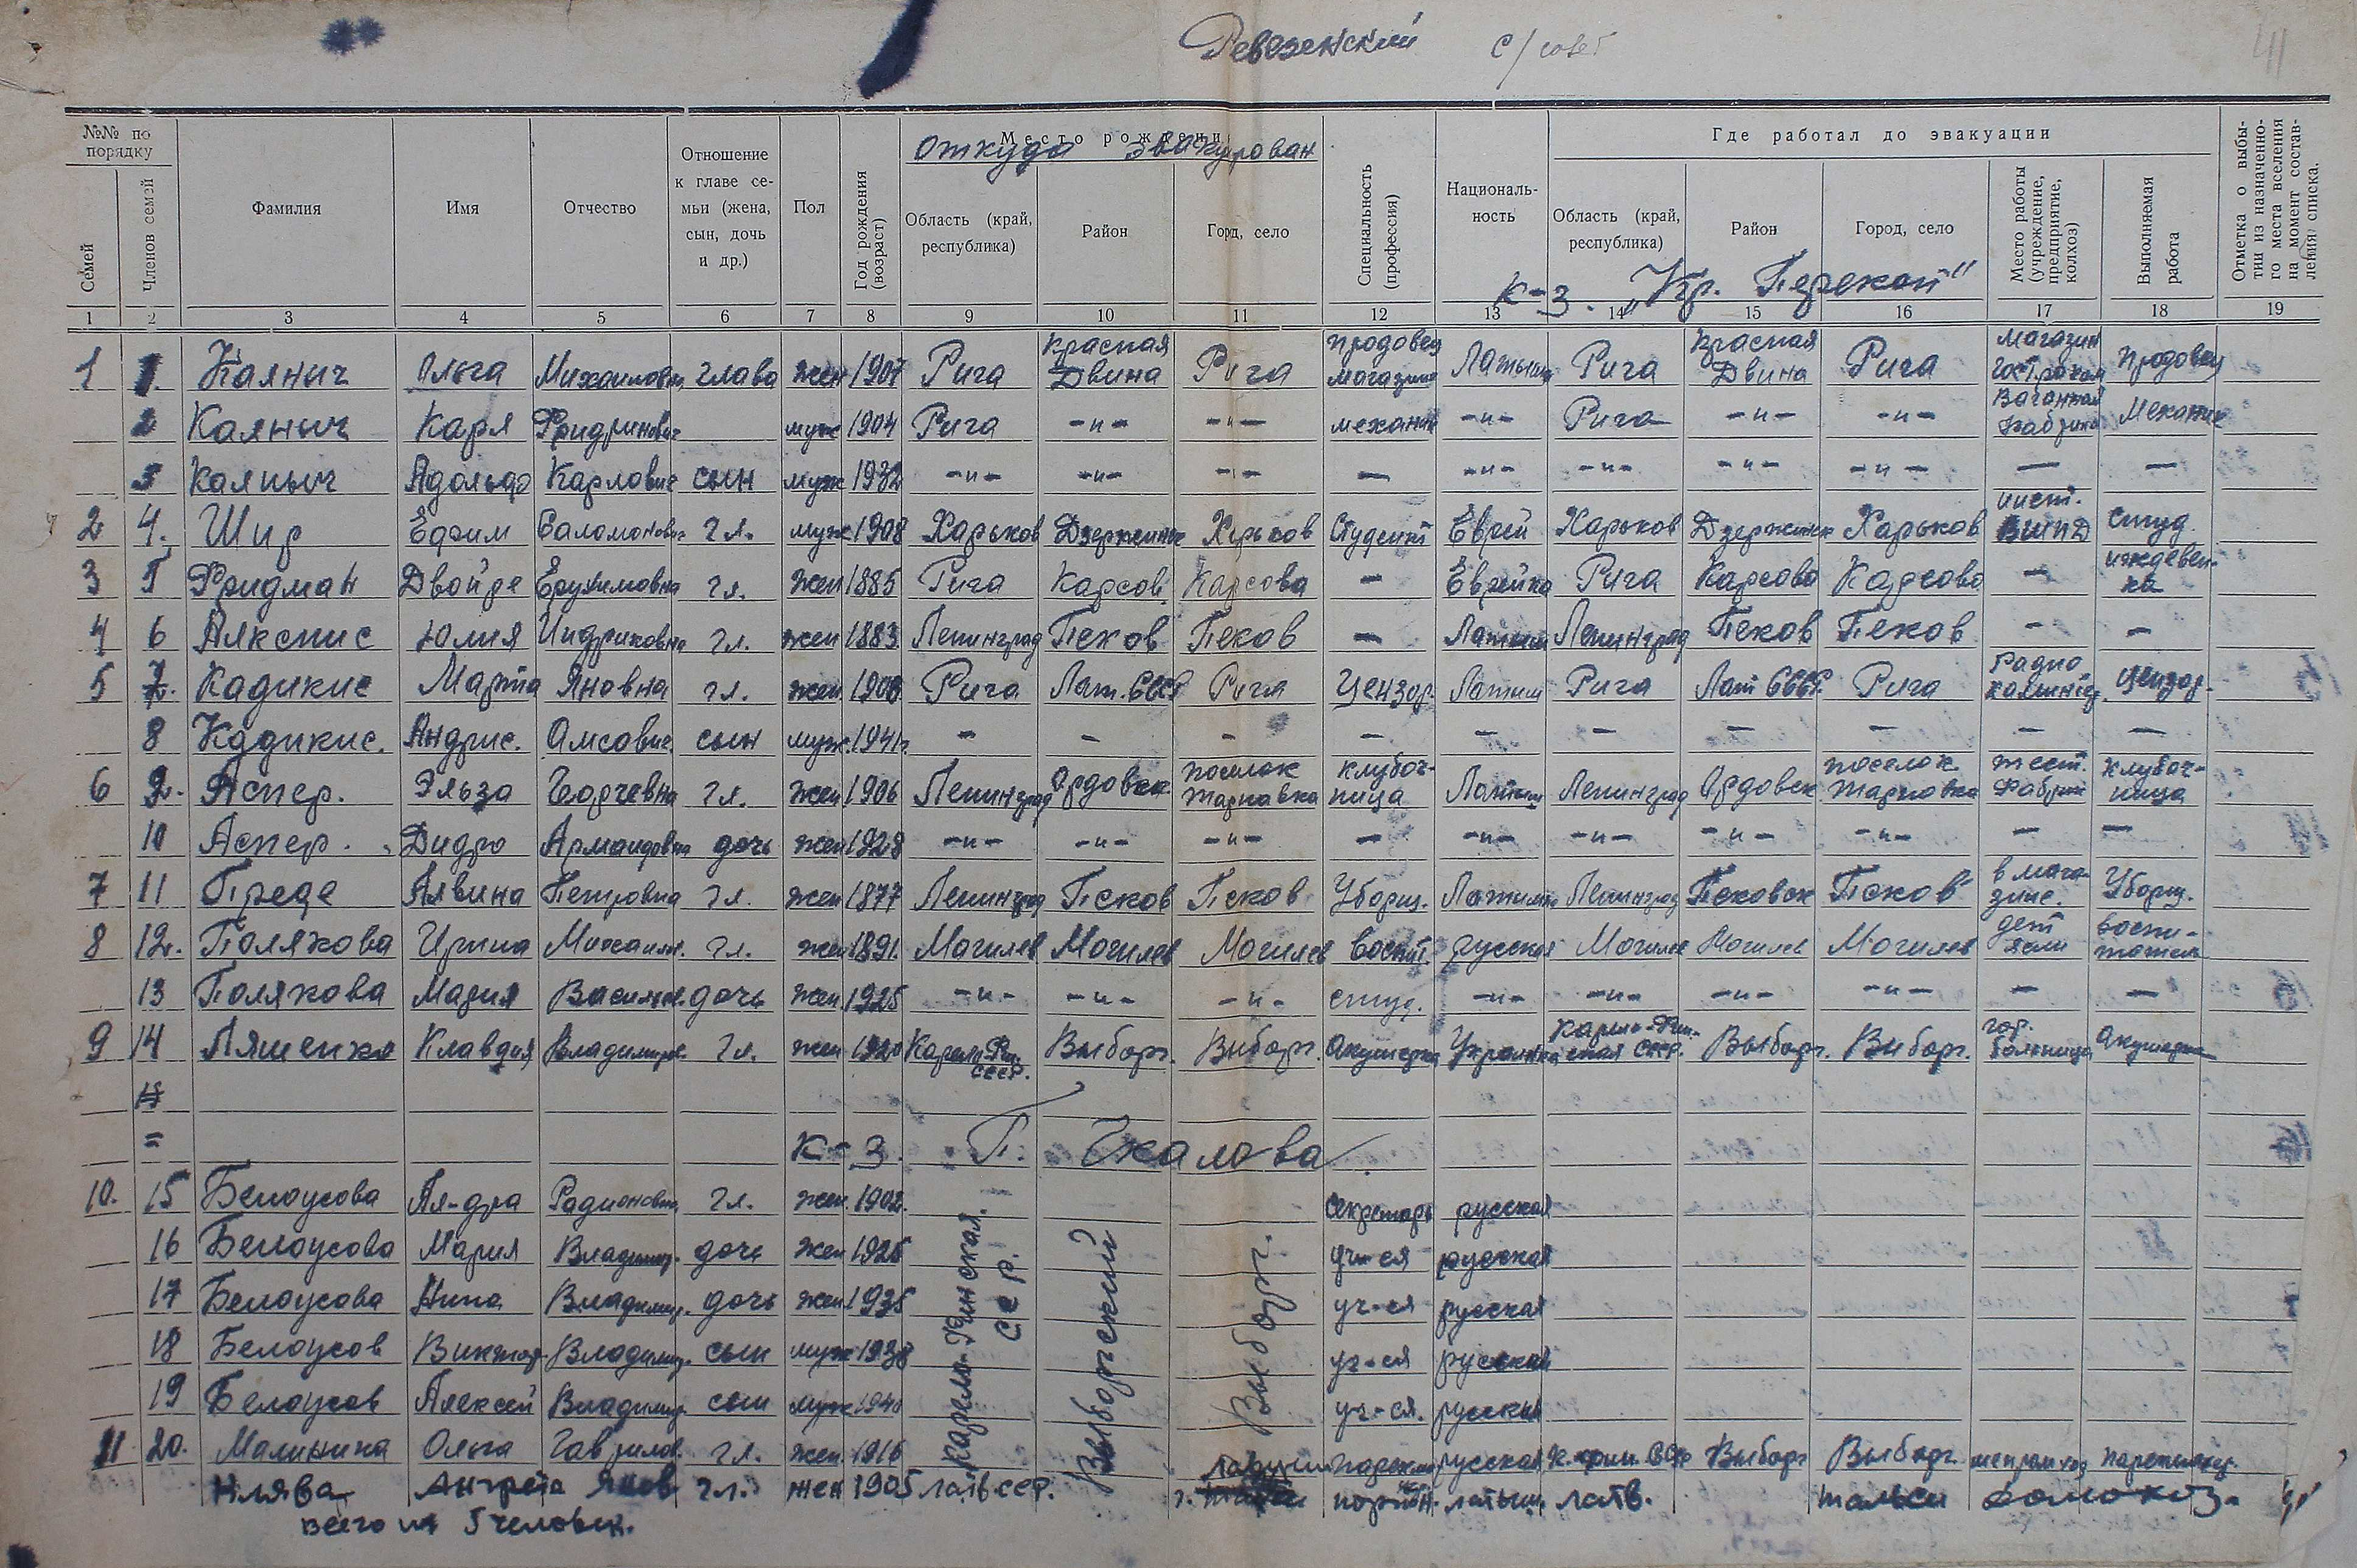 Ревезенский с/совет
41
№№ по порядку
Семей
Членов семей
Фамилия
Имя
Отчество
Отношение к главе семьи (жена, сын, дочь и др.)
Пол
Год рождения (возраст)
Место рождения
откуда эвакуирован
Область (край, республика)
Район
Город, село
Специальность (профессия)
Националь-ность
Где работал до эвакуации
Область (край, республика)
Район
Город, село
Место работы (учреждение, предприятие, колхоз)
Выполняемая работа
Отметка о выбы-тии из назначенно-го места вселения на момент состав-ления списка.
к-з. „Кр. Перекоп"
1 2 3 4 5 6 7 8 9 10 11 12 13 14 15 16 17 18 19
1 1. Каяныч Ольга Михайловна глава жен 1907 Рига Красная Двина Рига продовец магазина Латыш Рига Красная Двина Рига магазин продовец
2 Каяныч Каря муж 1904 Рига -"- -"- механик -"- Рига -"- -"- Вагонная фабрика Механик
3 Каяныч Адольф Карлович сын муж 1932 -"- -"- -"- — -"- -"- -"- -"- — —
2 4. Шир Ефим Саломонович гл. муж 1908 Харьков Дзержинск Харьков Студент Еврей Харьков Дзержинск Харьков инст. студ.
3 5 Фридман Двойре гл. жен 1885 Рига Карсов Карсова — Еврейка Рига Карсова Карсова — иждевен-ка
4 6 Алкснис Юлия Индриковна гл. жен 1883 Ленинград Псков Псков — Латыш Ленинград Псков Псков — —
5 7. Кадикис Марта Яновна гл. жен 1900 Рига Лат. ССР Рига Цензор. Латыш Рига Лат СССР. Рига Радио цензор.
8 Кадикис. Андрис. сын муж. 1941г. — — — — — — — — — —
6 9. Аспер. Эльза гл. жен 1906 Ленинград поселок клубоч-ница Латыш Ленинград поселок фабрик клубоч-ница
10 Аспер. Армандовна дочь жен 1928 -"- -"- -"- — -"- -"- -"- -"- — —
7 11 Преде Алвина Петровна гл. жен 1877 Ленинград Псков Псков Уборщ. Латыш Ленинград Псковск Псков в мага-зине. Уборщ.
8 12. Полякова Ирина Михаил. гл. жен 1891. Могилев Могилев Могилев воспит. русская Могилев Могилев Могилев дет ясли воспи-татель
13 Полякова Мария Васильев. дочь жен. 1925 -"- -"- -"- студ. -"- -"- -"- -"- — —
9 14 Ляшенко Клавдия Владимиров. гл. жен 1920 Карело-Фин. СССР. Выборг. Выборг. Акушерка Украинка Карело-Фин-ская СССР. Выборг. Выборг. гор. больница Акушерка
к-з. П. Чкалова
10. 15 Белоусова Ал-дра Радионовна гл. жен. 1902 Карело-Финская. ССР. Выборгский Выборг. секретарь русская
16 Белоусова Мария Владимир. дочь жен 1925 уч-ся русская
17 Белоусова Нина Владимир. дочь жен 1935 уч-ся русская
18 Белоусов Виктор Владимир. сын муж 1938 уч-ся русский
19 Белоусов Алексей Владимир. сын муж 1940 уч-ся. русский
11 20. Малинина Ольга Гаврилов. гл. жен. 1916 русская Выборг Выборг.
Клява Ангрета Яков гл. жен 1905 латв ССР. латыш. латв. тальси домохоз.
всего 5 человек.